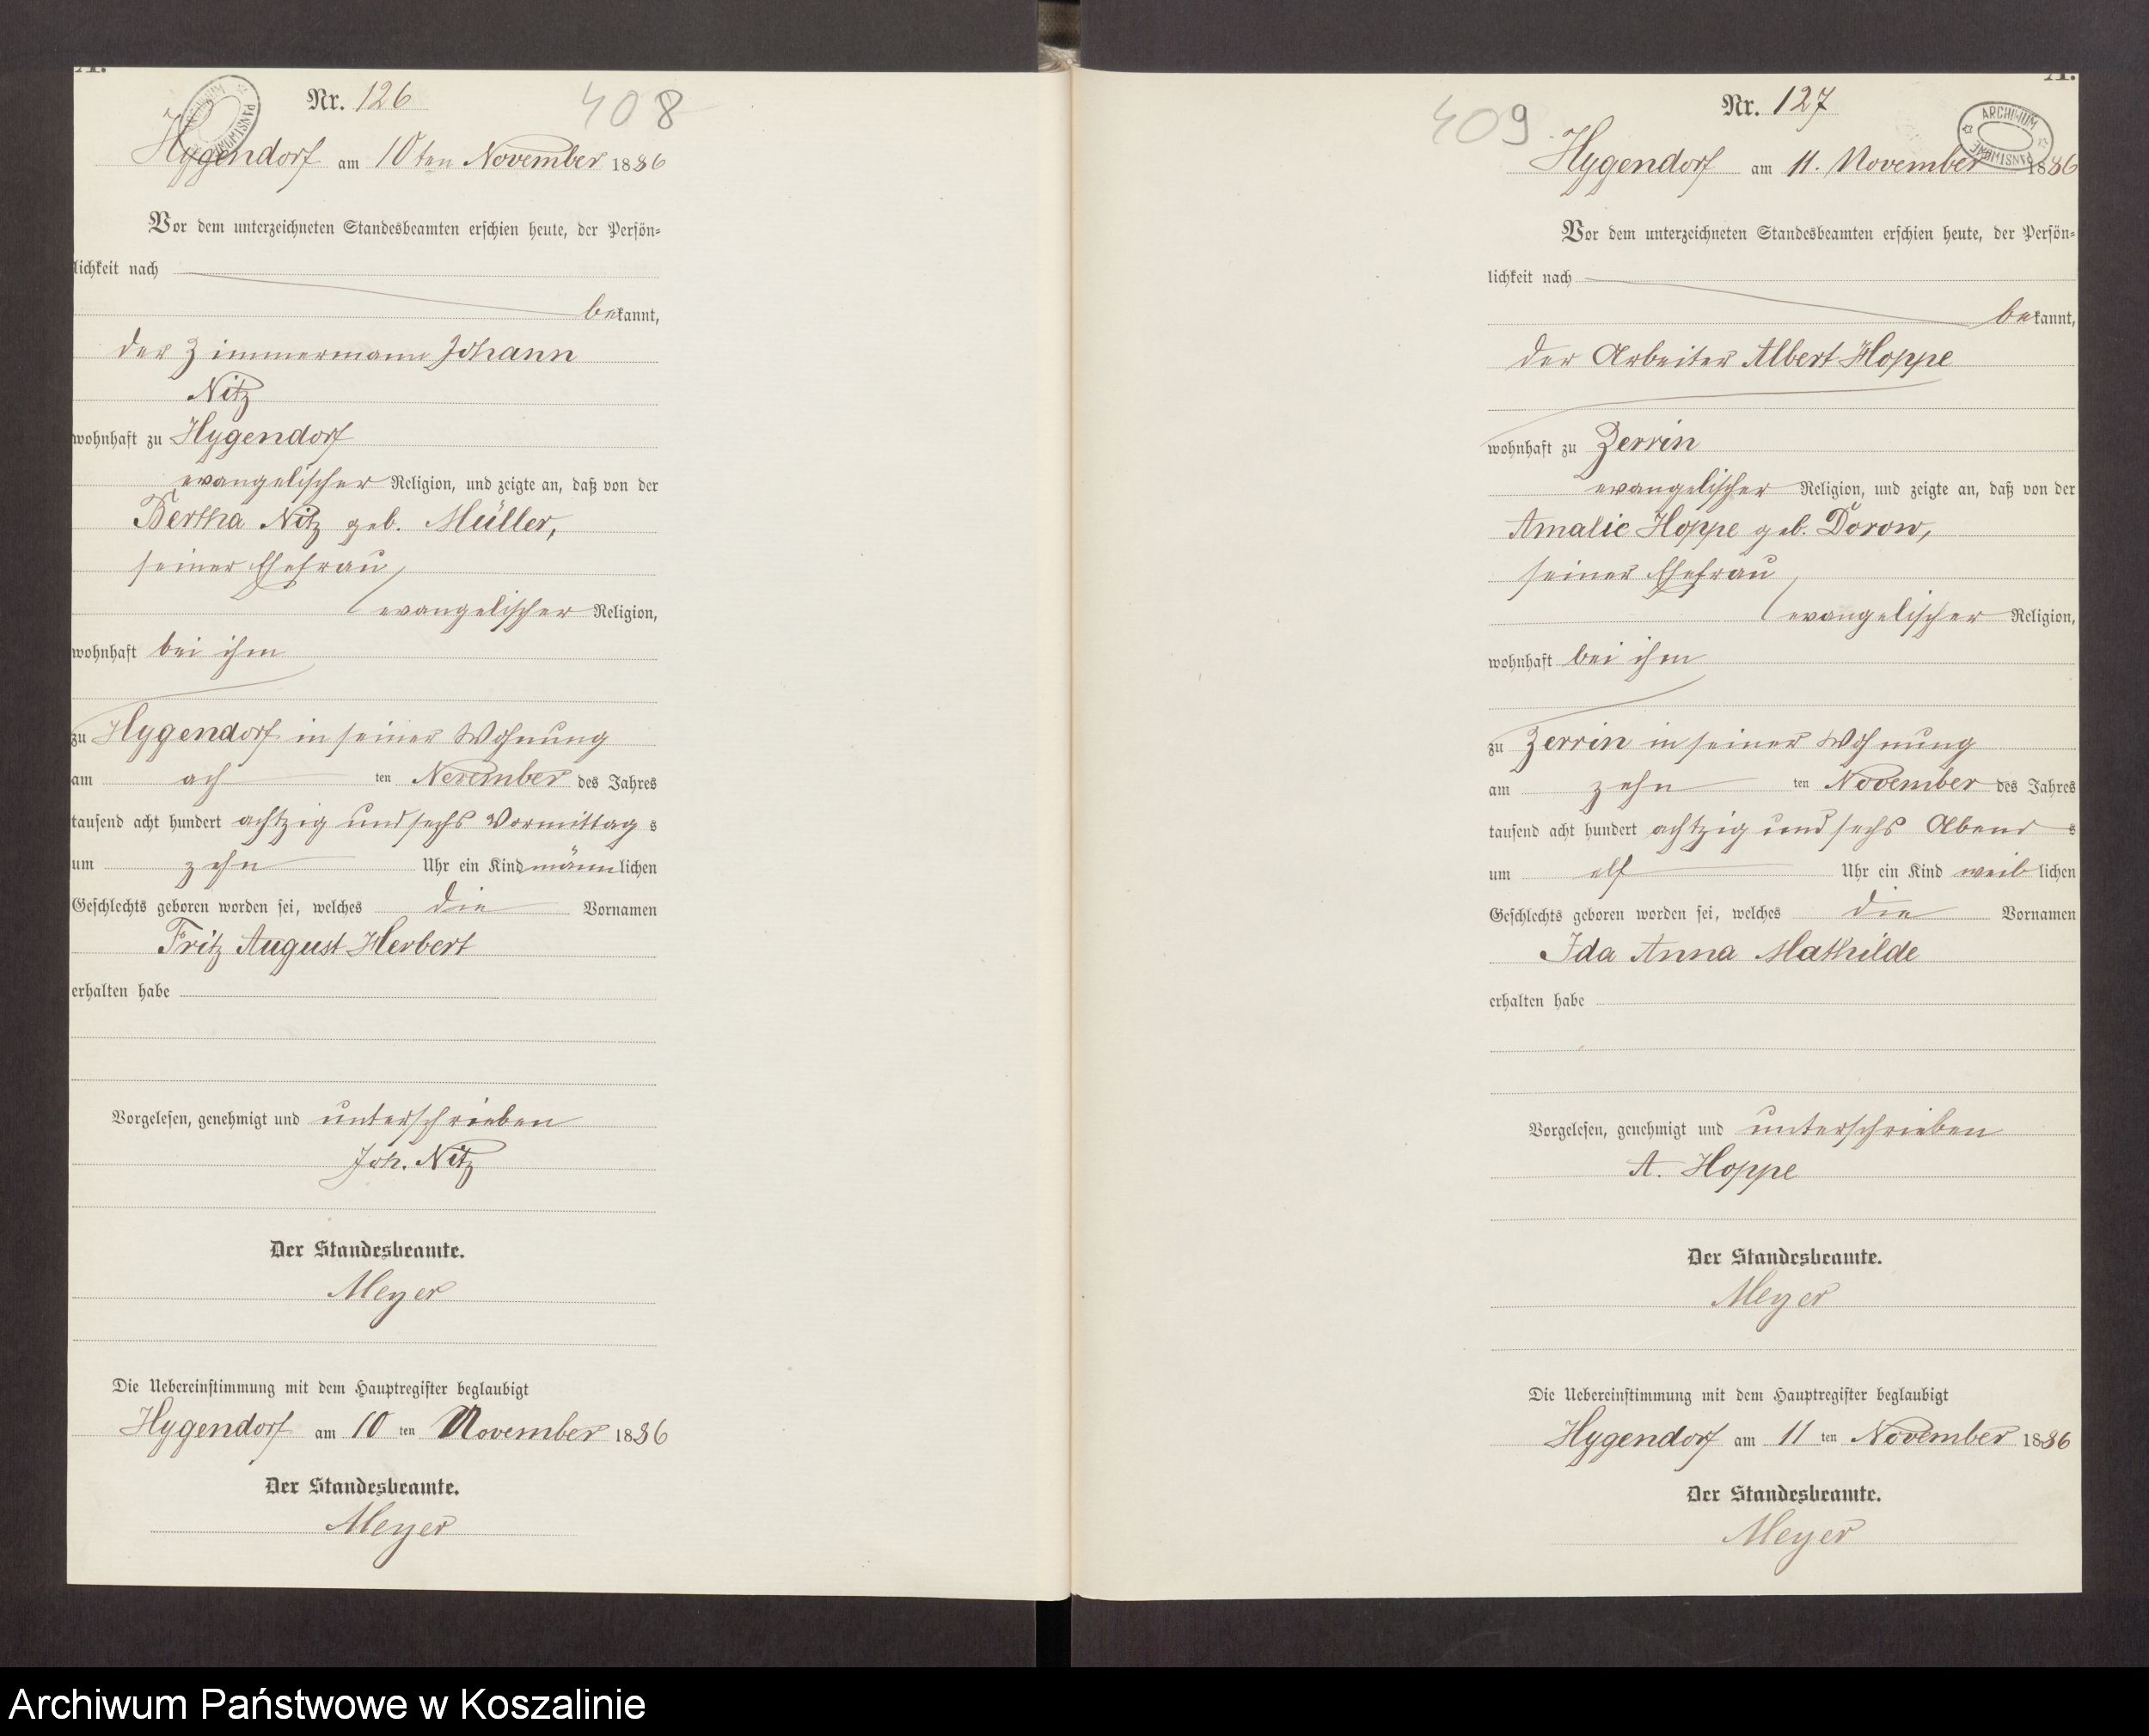 A.
Nr. 126
408
Hygendorf am 10ten November 1886
Vor dem unterzeichneten Standesbeamten erschien heute, der Persön=
lichkeit nach
bekannt,
der Zimmermann Johann
Nitz
wohnhaft zu Hygendorf
evangelischer Religion, und zeigte an, daß von der
Bertha Nitz geb. Müller,
seiner Ehefrau,
evangelischer Religion,
wohnhaft bei ihm
zu Hygendorf in seiner Wohnung
am ach ten November des Jahres
tausend acht hundert achtzig und sechs Vormittag s
um zehn Uhr ein Kind männlichen
Geschlechts geboren worden sei, welches die Vornamen
Fritz August Herbert
erhalten habe
Vorgelesen, genehmigt und unterschrieben
Joh. Nitz
Der Standesbeamte.
Meyer
Die Uebereinstimmung mit dem Hauptregister beglaubigt
Hygendorf am 10 ten November 1886
Der Standesbeamte.
Meyer
A.
Nr. 127
409
ARCHIWUM PAŃSTWOWE
Hygendorf am 11. November 1886
Vor dem unterzeichneten Standesbeamten erschien heute, der Persön=
lichkeit nach
bekannt,
der Arbeiter Albert Hoppe
wohnhaft zu Zerrin
evangelischer Religion, und zeigte an, daß von der
Amalie Hoppe geb. Dorow,
seiner Ehefrau,
evangelischer Religion,
wohnhaft bei ihm
zu Zerrin in seiner Wohnung
am zehn ten November des Jahres
tausend acht hundert achtzig und sechs Abend s
um elf Uhr ein Kind weiblichen
Geschlechts geboren worden sei, welches die Vornamen
Ida Anna Mathilde
erhalten habe
Vorgelesen, genehmigt und unterschrieben
A. Hoppe
Der Standesbeamte.
Meyer
Die Uebereinstimmung mit dem Hauptregister beglaubigt
Hygendorf am 11 ten November 1886
Der Standesbeamte.
Meyer
Archiwum Państwowe w Koszalinie